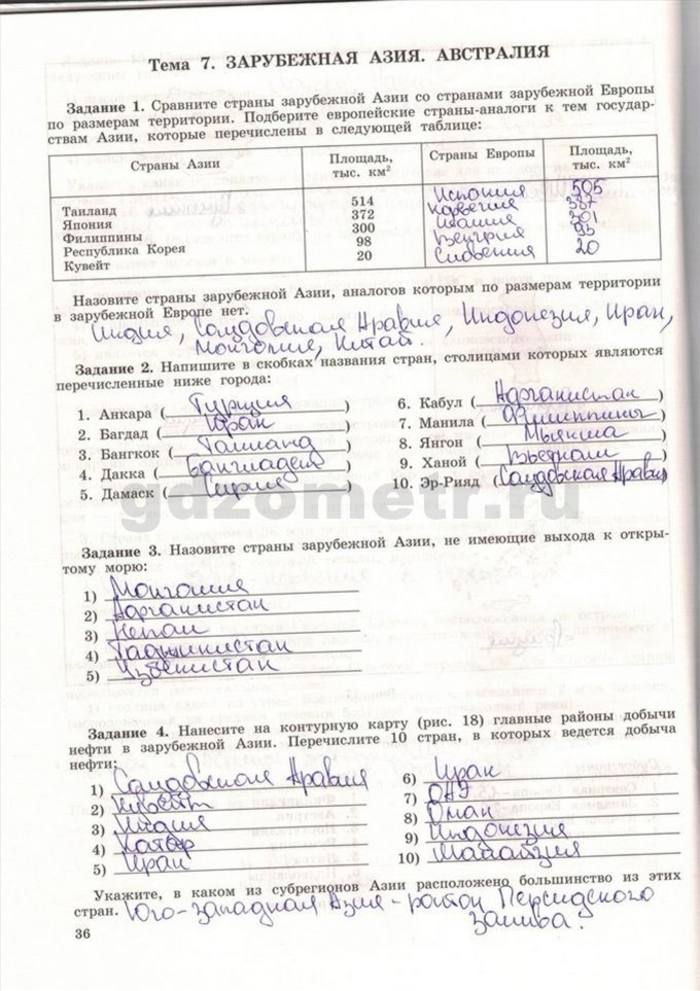 Тема 7. ЗАРУБЕЖНАЯ АЗИЯ. АВСТРАЛИЯ
Задание 1. Сравните страны зарубежной Азии со странами зарубежной Европы
по размерам территории. Подберите европейские страны-аналоги к тем государ-
ствам Азии, которые перечислены в следующей таблице:
Страны Азии Площадь, тыс. км² Страны Европы Площадь, тыс. км²
Таиланд 514 Испания 505
Япония 372 Норвегия 387
Филиппины 300 Италия 301
Республика Корея 98 Венгрия 93
Кувейт 20 Словения 20
Назовите страны зарубежной Азии, аналогов которым по размерам территории
в зарубежной Европе нет.
Индия, Саудовская Аравия, Индонезия, Иран,
Монголия, Китай.
Задание 2. Напишите в скобках названия стран, столицами которых являются
перечисленные ниже города:
1. Анкара (Турция)
2. Багдад (Ирак)
3. Бангкок (Таиланд)
4. Дакка (Бангладеш)
5. Дамаск (Сирия)
6. Кабул (Афганистан)
7. Манила (Филиппины)
8. Янгон (Мьянма)
9. Ханой (Вьетнам)
10. Эр-Рияд (Саудовская Аравия)
gdzometr.ru
Задание 3. Назовите страны зарубежной Азии, не имеющие выхода к откры-
тому морю:
1) Монголия
2) Афганистан
3) Непал
4) Таджикистан
5) Узбекистан
Задание 4. Нанесите на контурную карту (рис. 18) главные районы добычи
нефти в зарубежной Азии. Перечислите 10 стран, в которых ведется добыча
нефти:
1) Саудовская Аравия
2) Кувейт
3) Индия
4) Катар
5) Иран
6) Ирак
7) ОАЭ
8) Оман
9) Индонезия
10) Малайзия
Укажите, в каком из субрегионов Азии расположено большинство из этих
стран. Юго-западная Азия - район Персидского
залива.
36